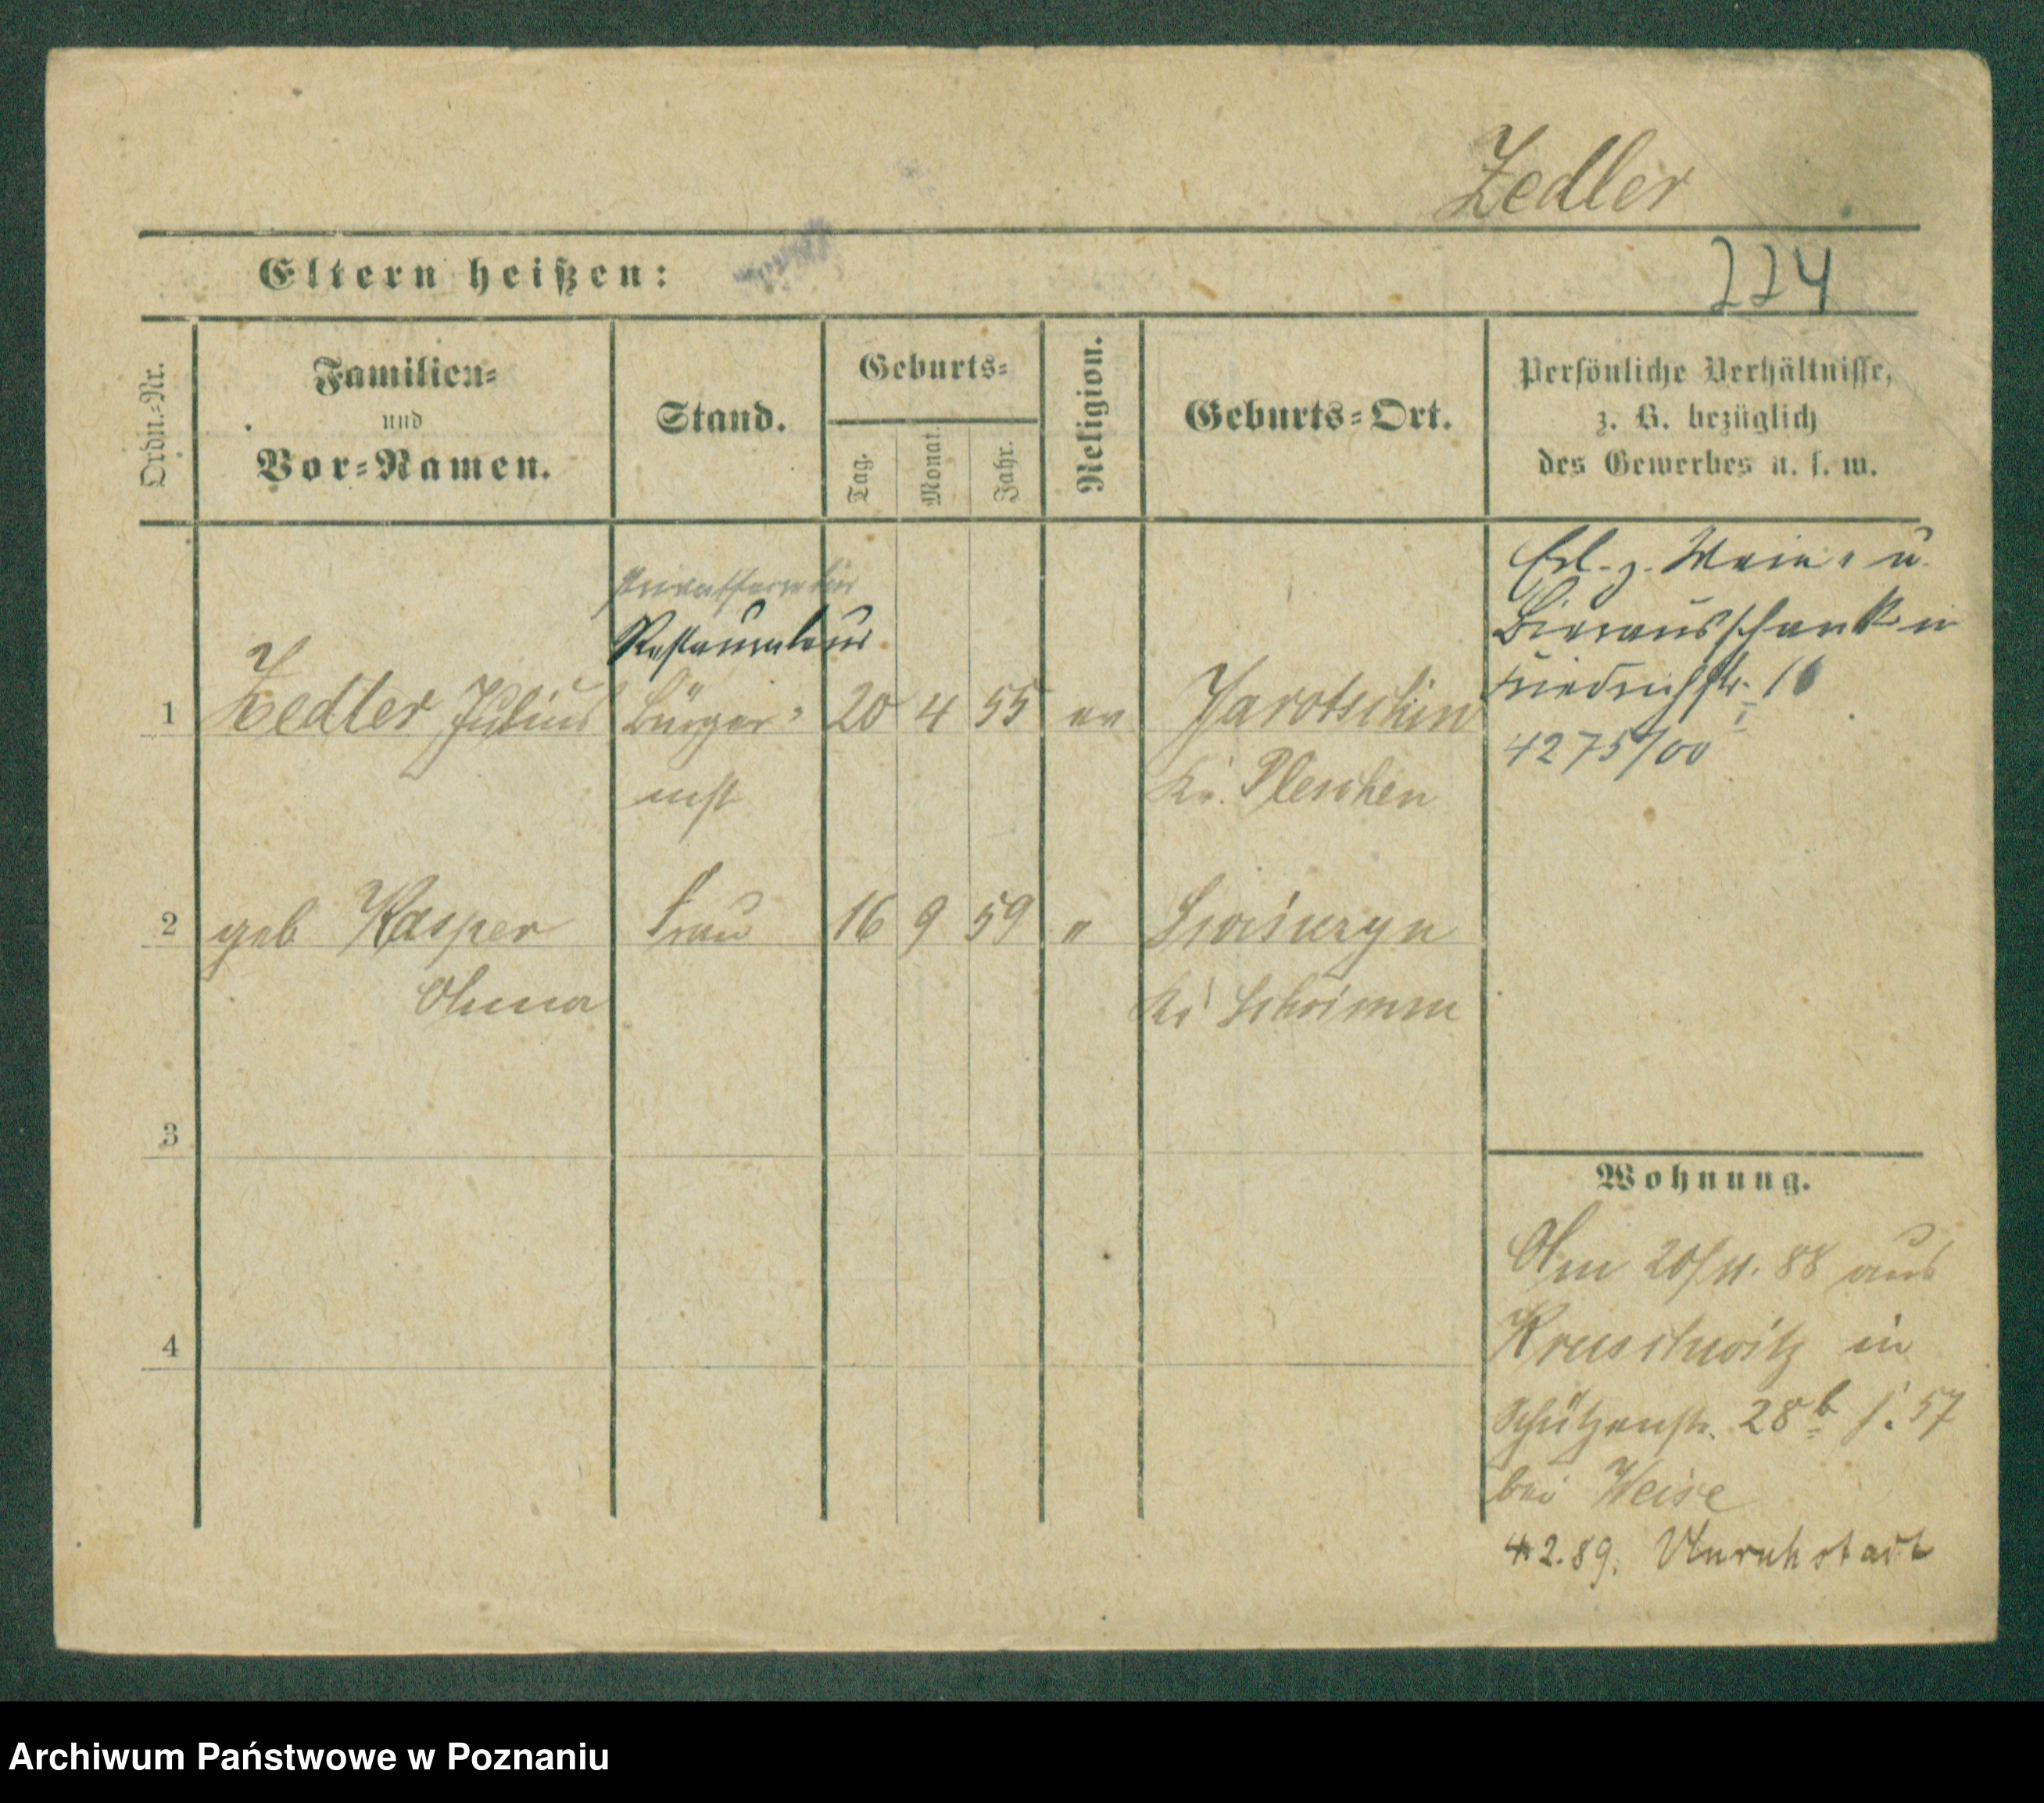 Zedler
Eltern heißen:
224
Ordn.=Nr.
Familien=
und
Vor=Namen.
Stand.
Geburts=
Tag.
Monat.
Jahr.
Religion.
Geburts=Ort.
Persönliche Verhältnisse,
z. B. bezüglich
des Gewerbes u. s. w.
Restaurateur
1 Zedler Julius Bürger= 20 4 55 ev Jarotschin
mst Kr. Pleschen
Erl. z. Wein= u.
Bierausschank in
Friedrichstr. 16
4275/00
2 geb Kasper Frau 16 9 59 "
Anna Kr Schrimm
3
4
Wohnung.
Am 20/11. 88 aus
Kruschwitz in
Schützenstr. 28b 57
bei Weise
4.2.89. Unruhstadt
Archiwum Państwowe w Poznaniu